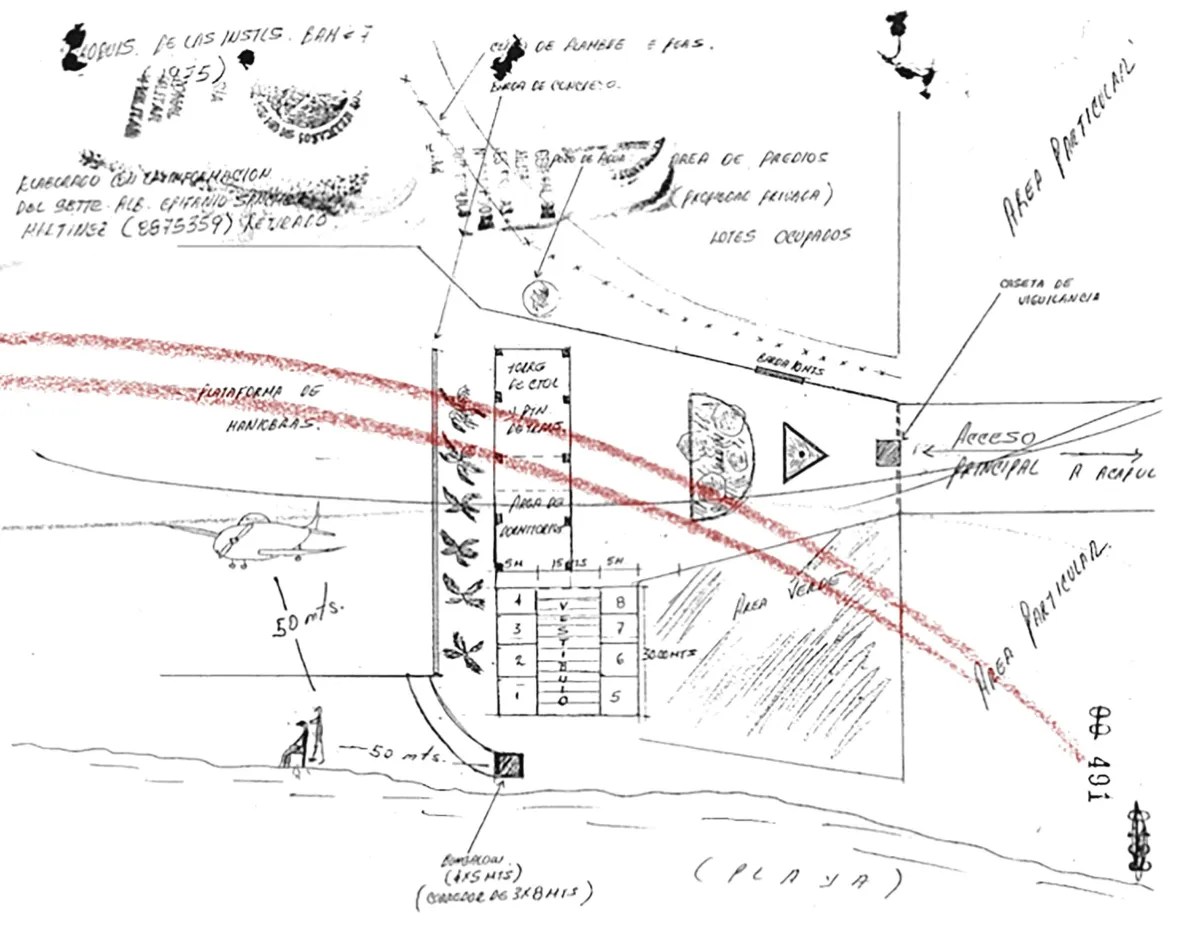 CROQUIS. DE LAS INSTLS. BAM # 7
(1975)
MILITAR
ELABORADO CON LA INFORMACION
DEL SGTTE. ALB. EPIFANIO SANCHEZ
MARTINEZ (8875359) RETIRADO.
DE ALAMBRE E PUAS.
BARDA DE CONCRETO.
POZO DE AGUA
AREA DE PREDIOS
(PROPIEDAD PRIVADA)
LOTES OCUPADOS
AREA PARTICULAR
CASETA DE
VIGUILANCIA
BARDA 10 MTS
TORRE
DE CTOL
PLATAFORMA DE
MANIOBRAS.
ACCESO
PRINCIPAL
A ACAPUL
AREA DE
DORMITORIOS
5M
15 MTS
5M
4
3
2
1
VESTIBULO
8
7
6
5
30.00 MTS
AREA VERDE
AREA PARTICULAR.
50 mts.
50 mts.
BUNGALOW.
(4X5 MTS)
(CORREDOR DE 3X8 MTS)
(PLAYA)
491